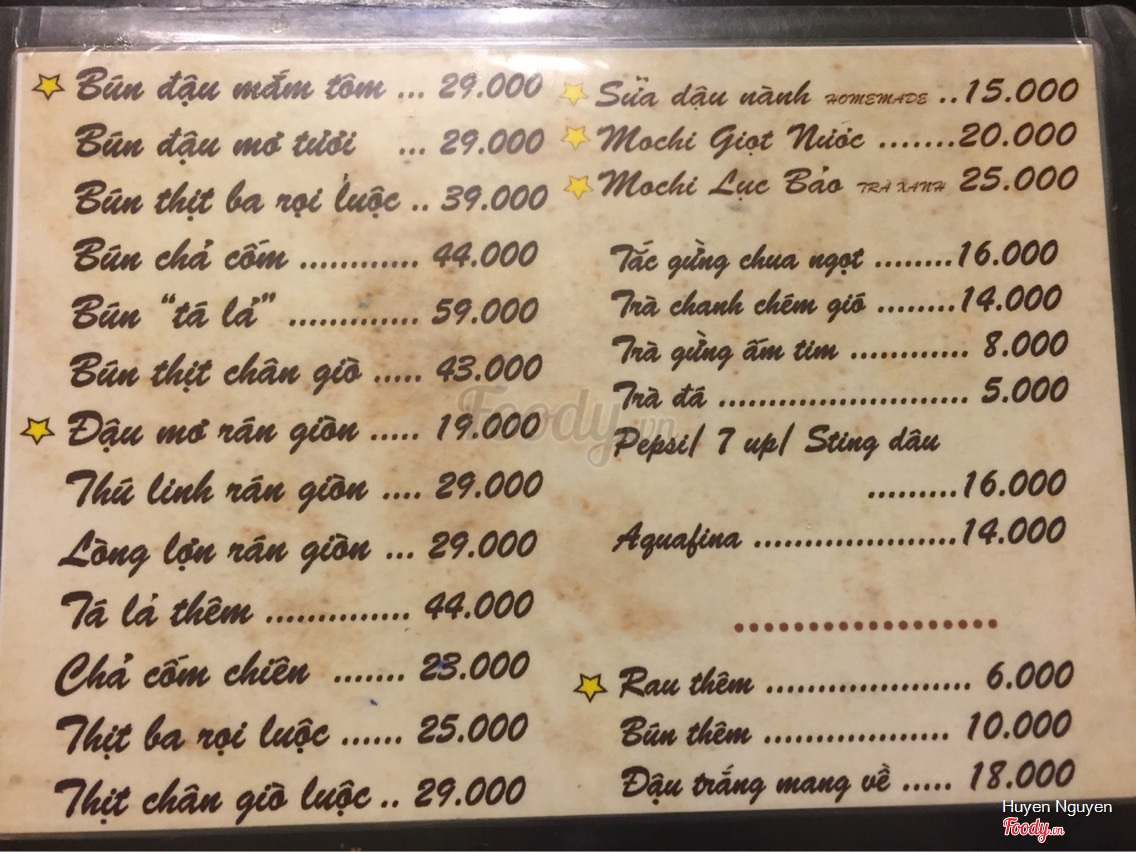 Bún đậu mắm tôm ... 29.000
Bún đậu mơ tươi ... 29.000
Bún thịt ba rọi luộc .. 39.000
Bún chả cốm ............ 44.000
Bún “tá lả” ............. 59.000
Bún thịt chân giò ..... 43.000
Đậu mơ rán giòn ..... 19.000
Thú linh rán giòn .... 29.000
Lòng lợn rán giòn ... 29.000
Tá lả thêm .............. 44.000
Chả cốm chiên ....... 23.000
Thịt ba rọi luộc ...... 25.000
Thịt chân giò luộc .. 29.000
Sữa dậu nành HOMEMADE ..15.000
Mochi Giọt Nước .......20.000
Mochi Lục Bảo TRÀ XANH 25.000
Tắc gừng chua ngọt ........16.000
Trà chanh chém gió ........14.000
Trà gừng ấm tim ............ 8.000
Trà đá ......................... 5.000
Pepsi/ 7 up/ Sting dâu
.........16.000
Aquafina ....................14.000
Rau thêm .................... 6.000
Bún thêm .................. 10.000
Đậu trắng mang về ..... 18.000
Foody.vn
Huyen Nguyen
Foody.vn